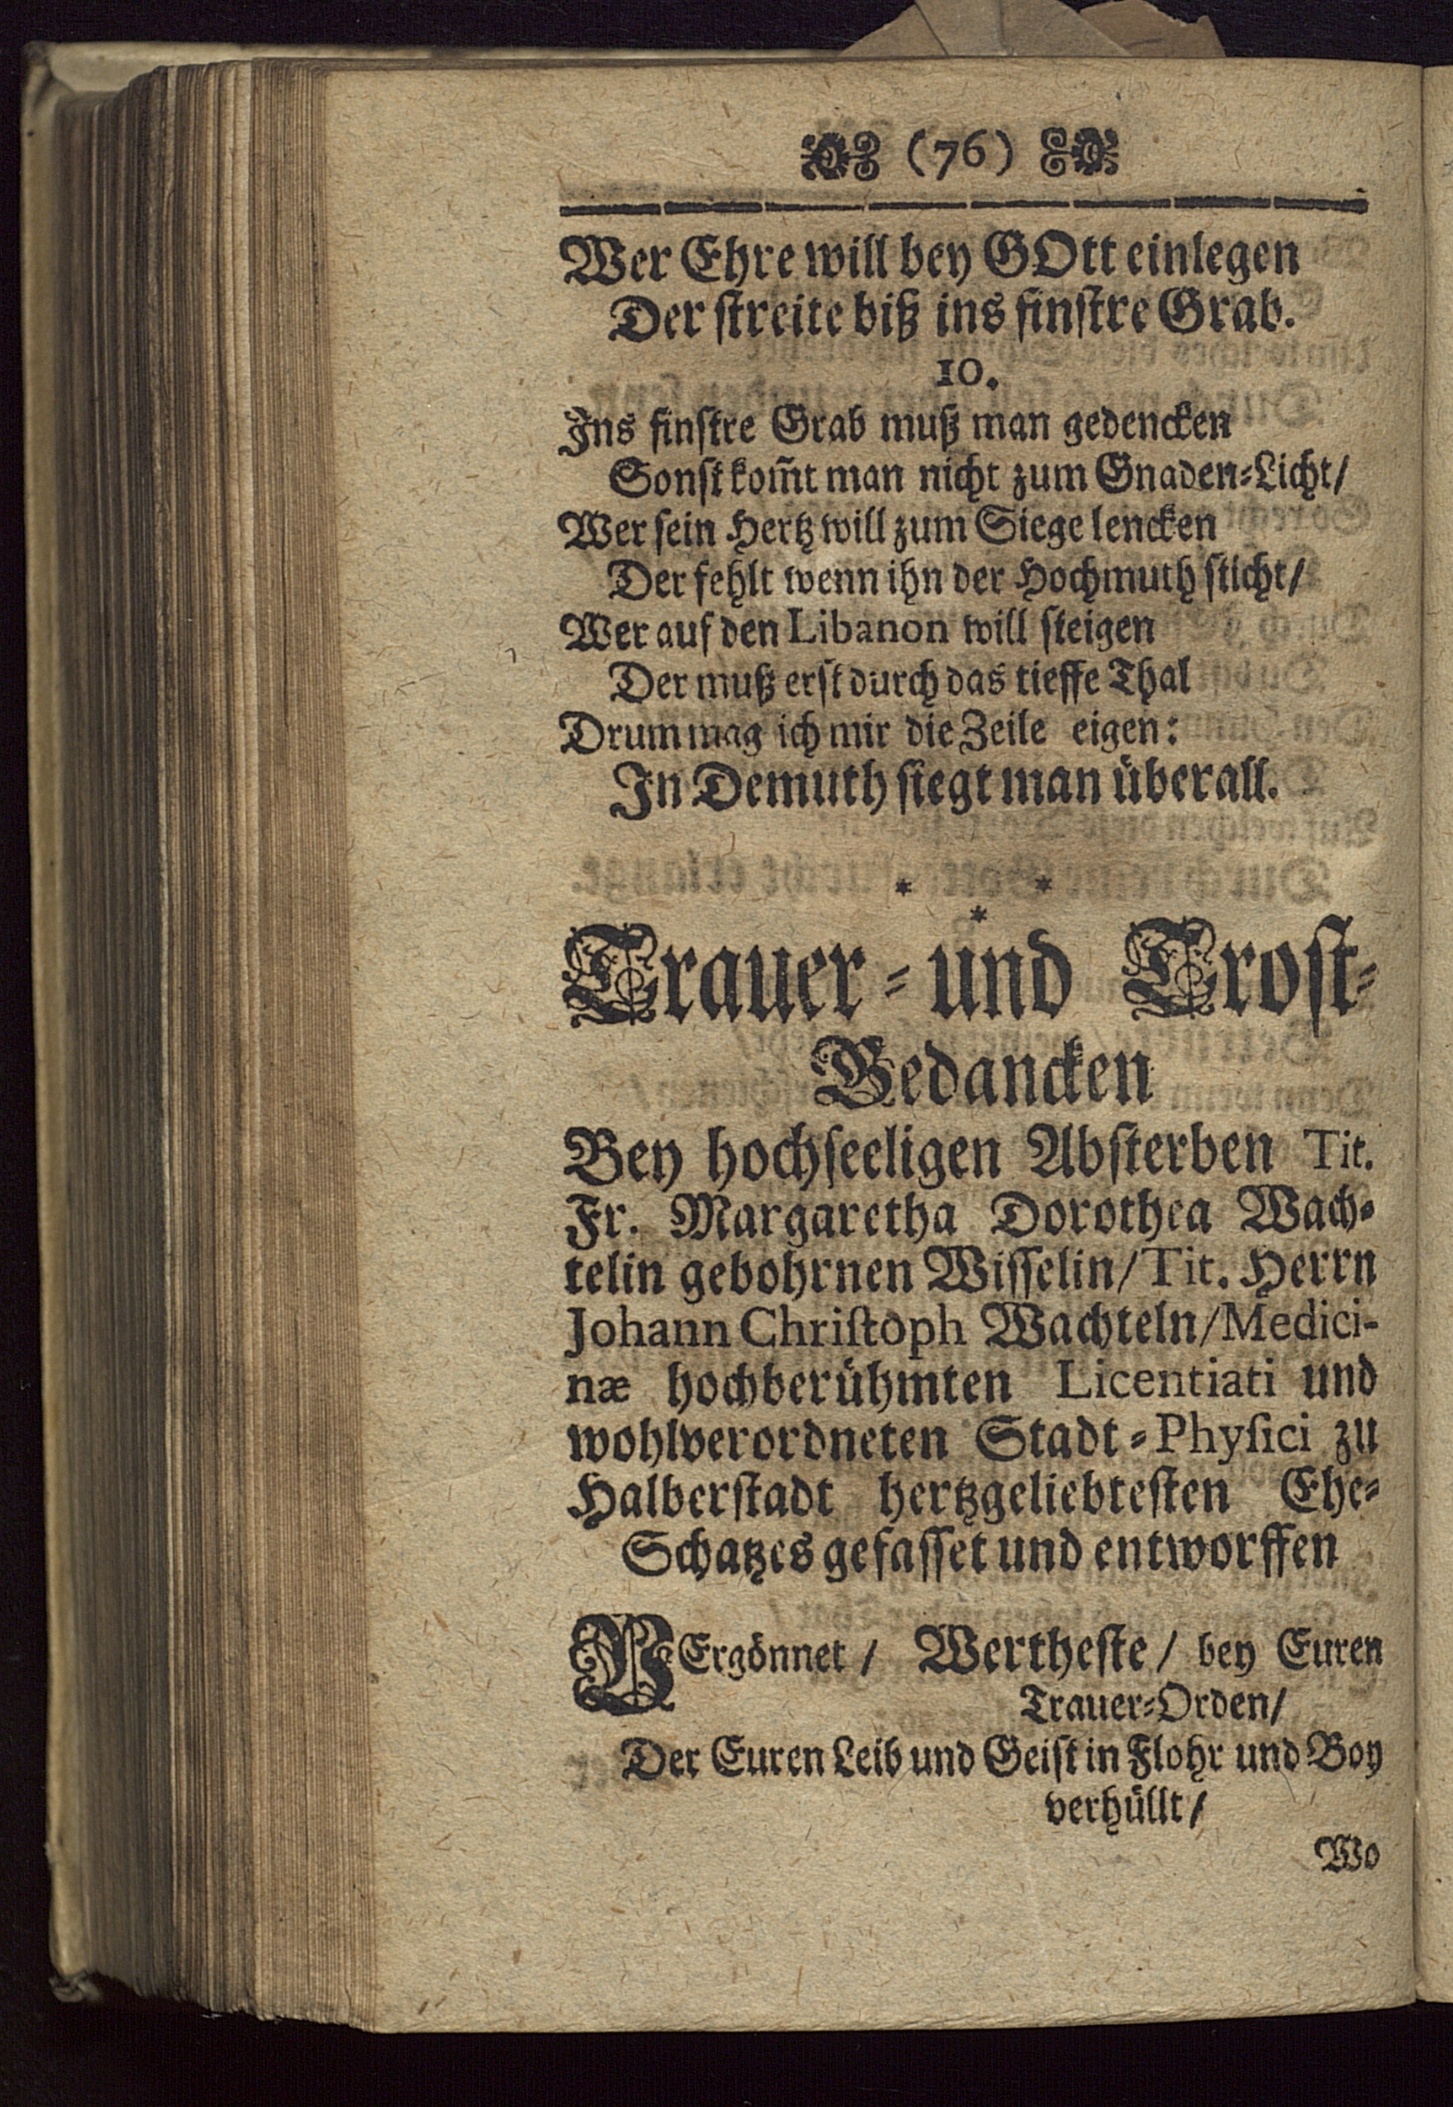 (76)
Wer Ehre will bey GOtt einlegen
Der streite biß ins finstre Grab.
10.
Ins finstre Grab muß man gedencken
Sonst kom̃t man nicht zum Gnaden-Licht/
Wer sein Hertz will zum Siege lencken
Der fehlt wenn ihn der Hochmuth sticht/
Wer auf den Libanon will steigen
Der muß erst durch das tieffe Thal
Drum mag ich mir die Zeile eigen:
In Demuth siegt man überall.
* * *
Trauer- und Trost-
Gedancken
Bey hochseeligen Absterben Tit.
Fr. Margaretha Dorothea Wach-
telin gebohrnen Wisselin/ Tit. Herrn
Johann Christoph Wachteln/ Medici-
næ hochberühmten Licentiati und
wohlverordneten Stadt-Physici zu
Halberstadt hertzgeliebtesten Ehe-
Schatzes gefasset und entworffen
VErgönnet/ Wertheste/ bey Euren
Trauer-Orden/
Der Euren Leib und Geist in Flohr und Boy
verhüllt/
Wo